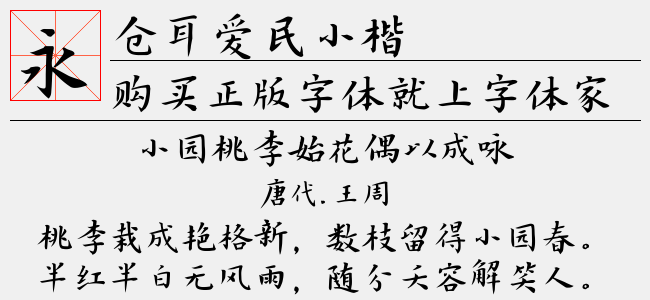 永
仓耳爱民小楷
购买正版字体就上字体家
小园桃李始花偶以成咏
唐代.王周
桃李栽成艳格新，数枝留得小园春。
半红半白无风雨，随分夭容解笑人。